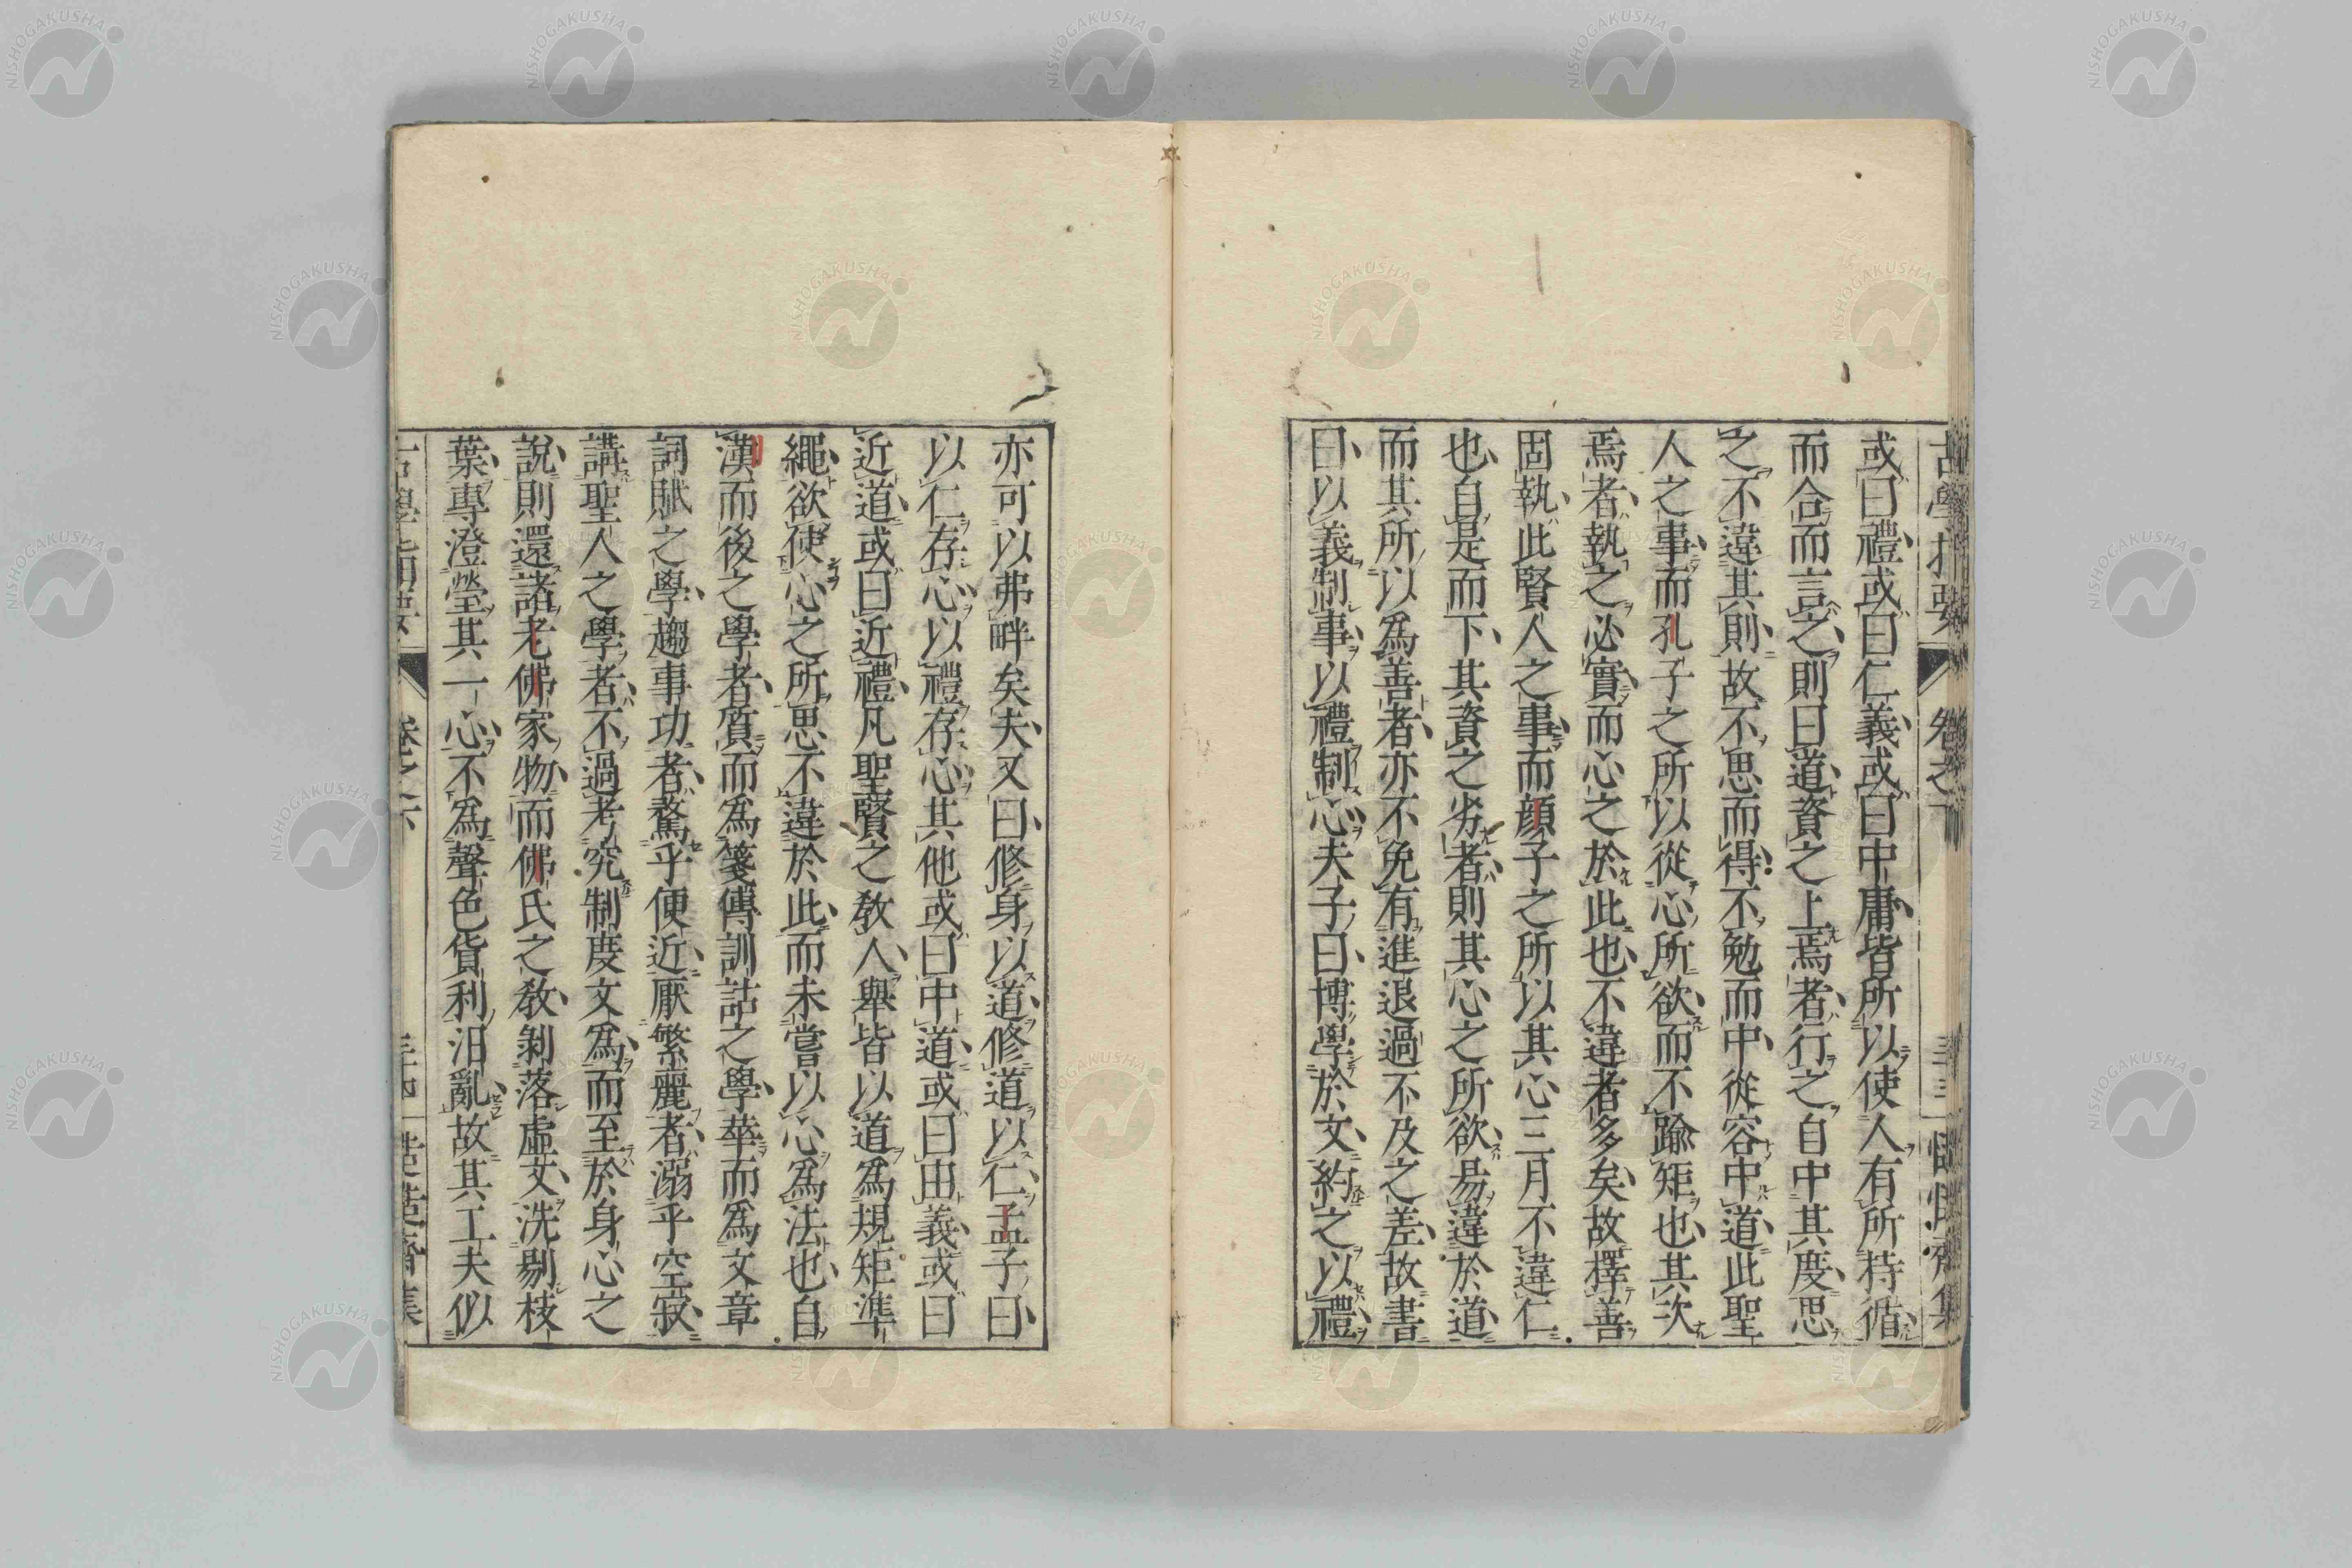 或曰禮或曰仁義或曰中庸皆所以使人有所持循
而合而言之則曰道資之上焉者行之自中其度思
之不違其則故不思而得不勉而中從容中道此聖
人之事而孔子之所以從心所欲而不踰矩也其次
焉者執之必實而心之於此也不違者多矣故擇善
固執此賢人之事而顔子之所以其心三月不違仁
也自是而下其資之劣者則其心之所欲易違於道
而其所以為善者亦不免有進退過不及之差故書
曰以義制事以禮制心夫子曰博學於文約之以禮
亦可以弗畔矣夫又曰修身以道修道以仁孟子曰
以仁存心以禮存心其他或曰中道或曰由義或曰
近道或曰近禮凡聖賢之教人舉皆以道為規矩準
繩欲使心之所思不違於此而未嘗以心為法也自
漢而後之學者質而為箋傳訓詁之學華而為文章
詞賦之學趨事功者騖乎便近厭繁麗者溺乎空寂
講聖人之學者不過考究制度文為而至於身心之
說則還諸老佛家物而佛氏之教剝落虛文洗剔枝
葉專澄瑩其一心不為聲色貨利汨亂故其工夫似
卷之六
NISHOGAKUSHA